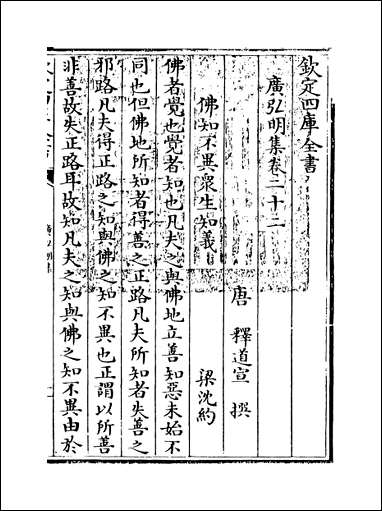 欽定四庫全書
廣弘明集卷二十二
唐 釋道宣 撰
佛知不異衆生知義 梁沈約
佛者覺也覺者知也凡夫之與佛地立善知惡未始不
同也但佛地所知者得善之正路凡夫所知者失善之
邪路凡夫得正路之知與佛之知不異也正謂以所善
非善故失正路耳故知凡夫之知與佛之知不異由於